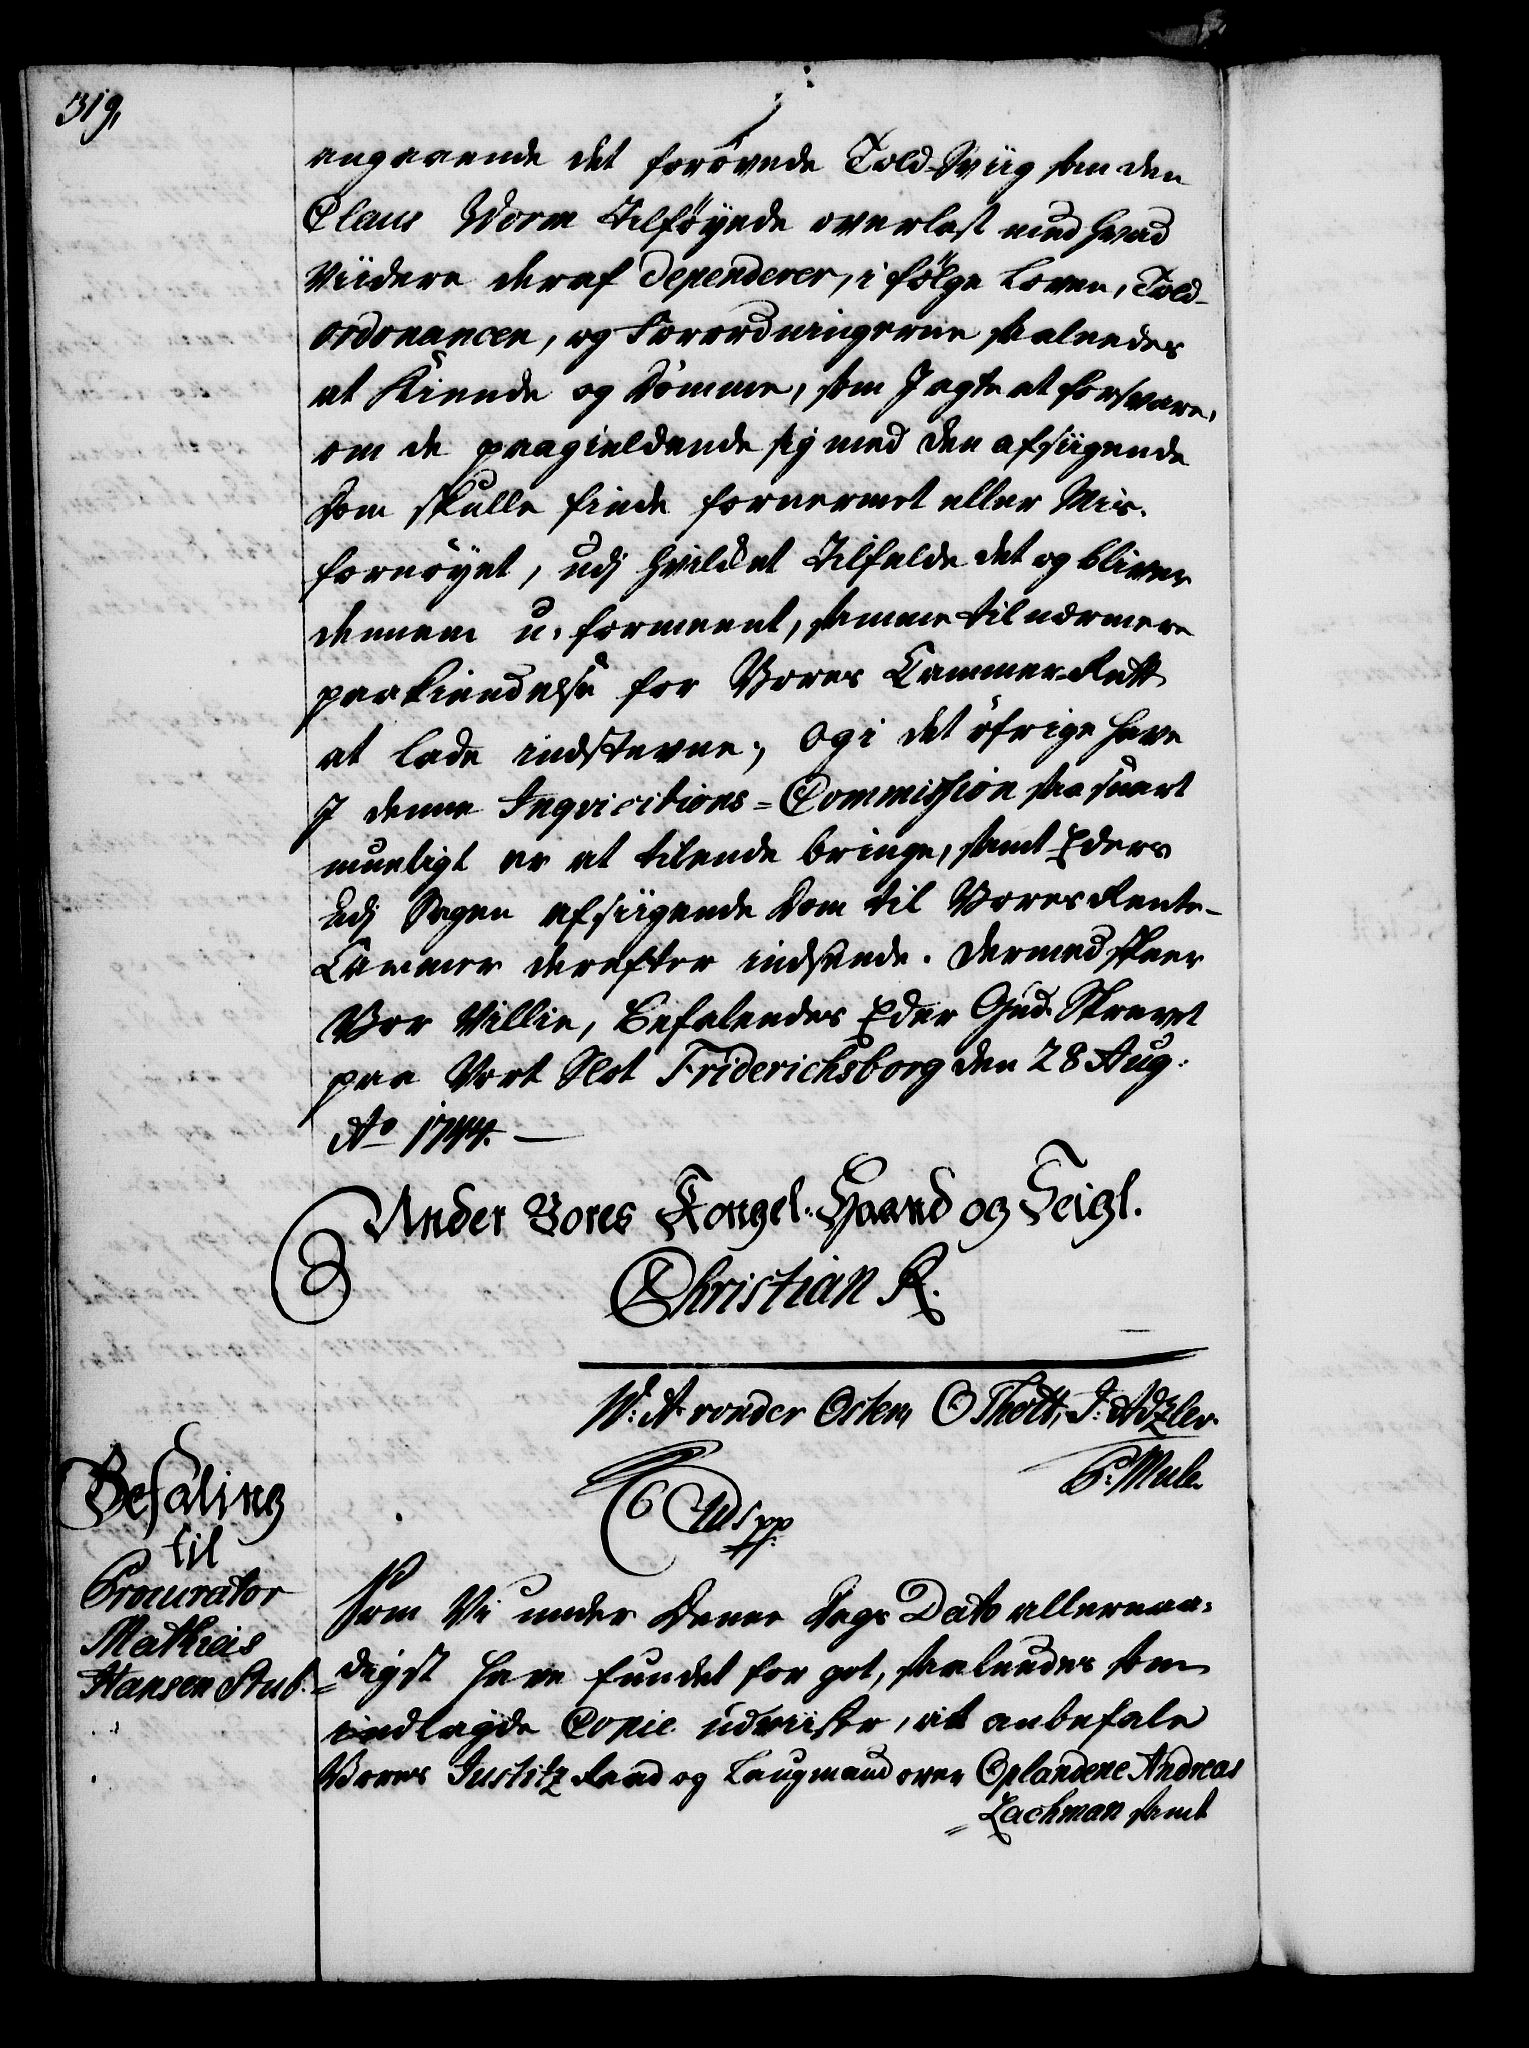 319,
angaaende det forövede Told-Sviig som den
Claus Worm tilföyede overlast med hvad
viidere deraf dependerer, i fölge Loven, Told-
ordonancen, og Forordningerne saaledes
at Kiende og dömme, som I agte at forsvare,
om de paagieldende sig med den afsiigende
Dom skulle finde fornermet eller Mis-
fornöyet, udj hvilcket Tilfelde det og bliver
dennem u-formeent, samme til nærmere
paakiendelse for Vores Cammer-Rett
at lade indstevne; Og i det öfrige have
I denne Inqvicitions-Commission saa snart
mueligt er at tilende bringe, samt Eders
udj Sagen afsiigende Dom til Vores Rente-
Cammer derefter indsende. Dermed skeer
Vor Villie, Befalendes Eder Gud. Skrevet
paa Vort Slot Friderichsborg den 28 Aug:
Ao 1744. —
Under Vores Kongel. Haand og Seigl.
Christian R.
W: A. vonder Osten, O Thott, J:
P: Mule.
Befaling
til
Procurator
Mathias
Hansen Stub.
C 6tus pp
Som Vi under Denne Dags Dato allernaa-
digst have fundet for got, saaledes som
indlagde Copie udviiser, at anbefale
Vores Justitz Raad og Laugmand over Oplandene Andreas
Lachman samt